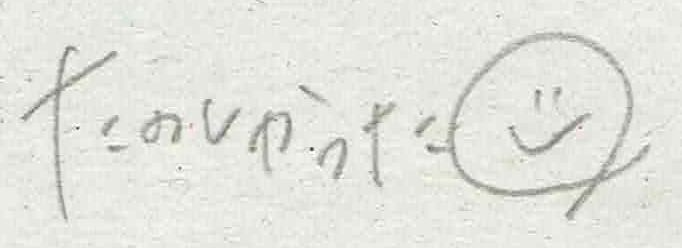 たのしかった